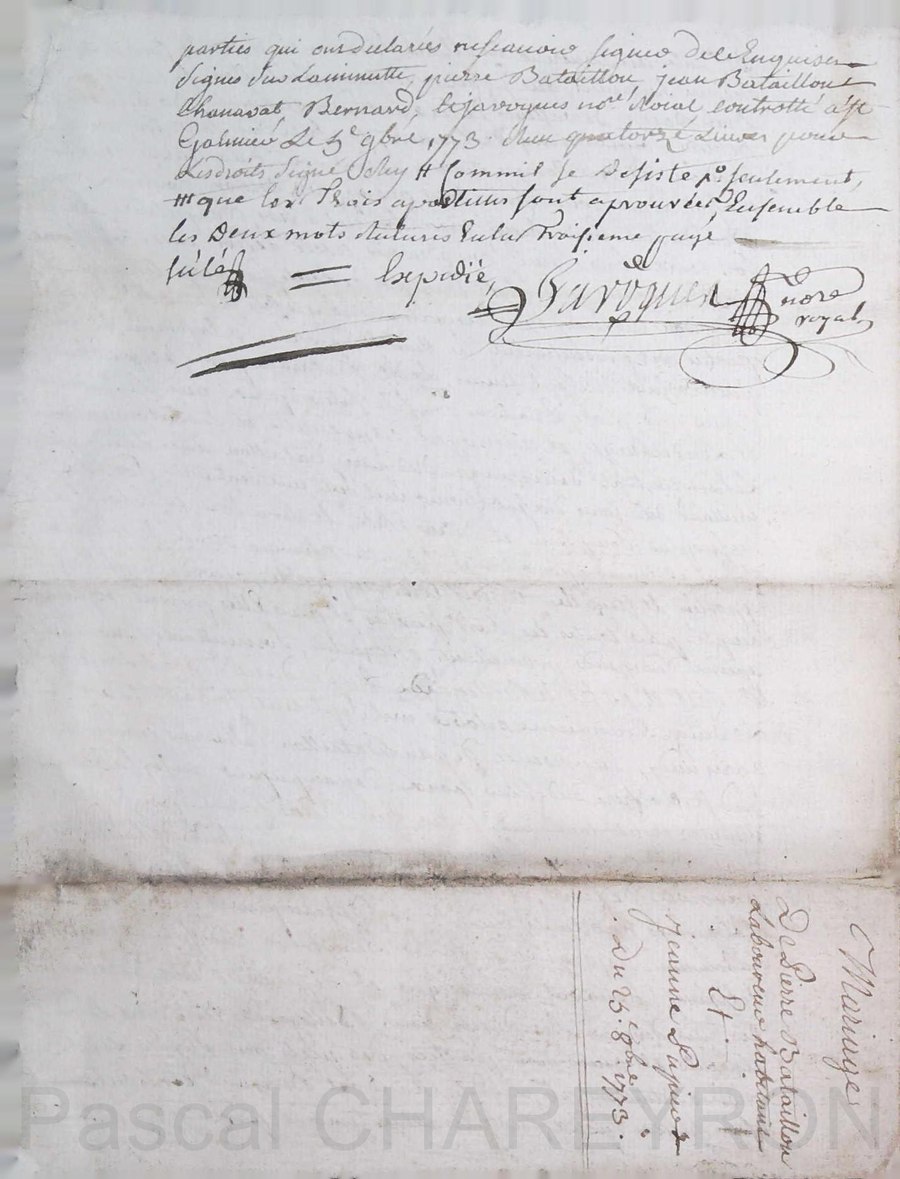 parties qui ont declarés ne scavoir signer de ce Enquises
signés sur La minutte, pierre Bataillon, jean Bataillon
Chanavat, Bernard, Dejaroques no.re Roial controllé à St
Galmié Le 5e 9bre 1773. Reçu quatorze Livres pour
Les droits signé # Commil Se Desiste po. seulement,
que les Trois apostilles sont aprouvées Ensemble
les Deux mots Raturés En la Troisieme page
Expedié,
Dejaroques nore
royal
Mariage
De Pierre Bataillon
Laboureur habitant
Et
Jeanne
Du 25e 8bre 1773.
Pascal CHAREYRON